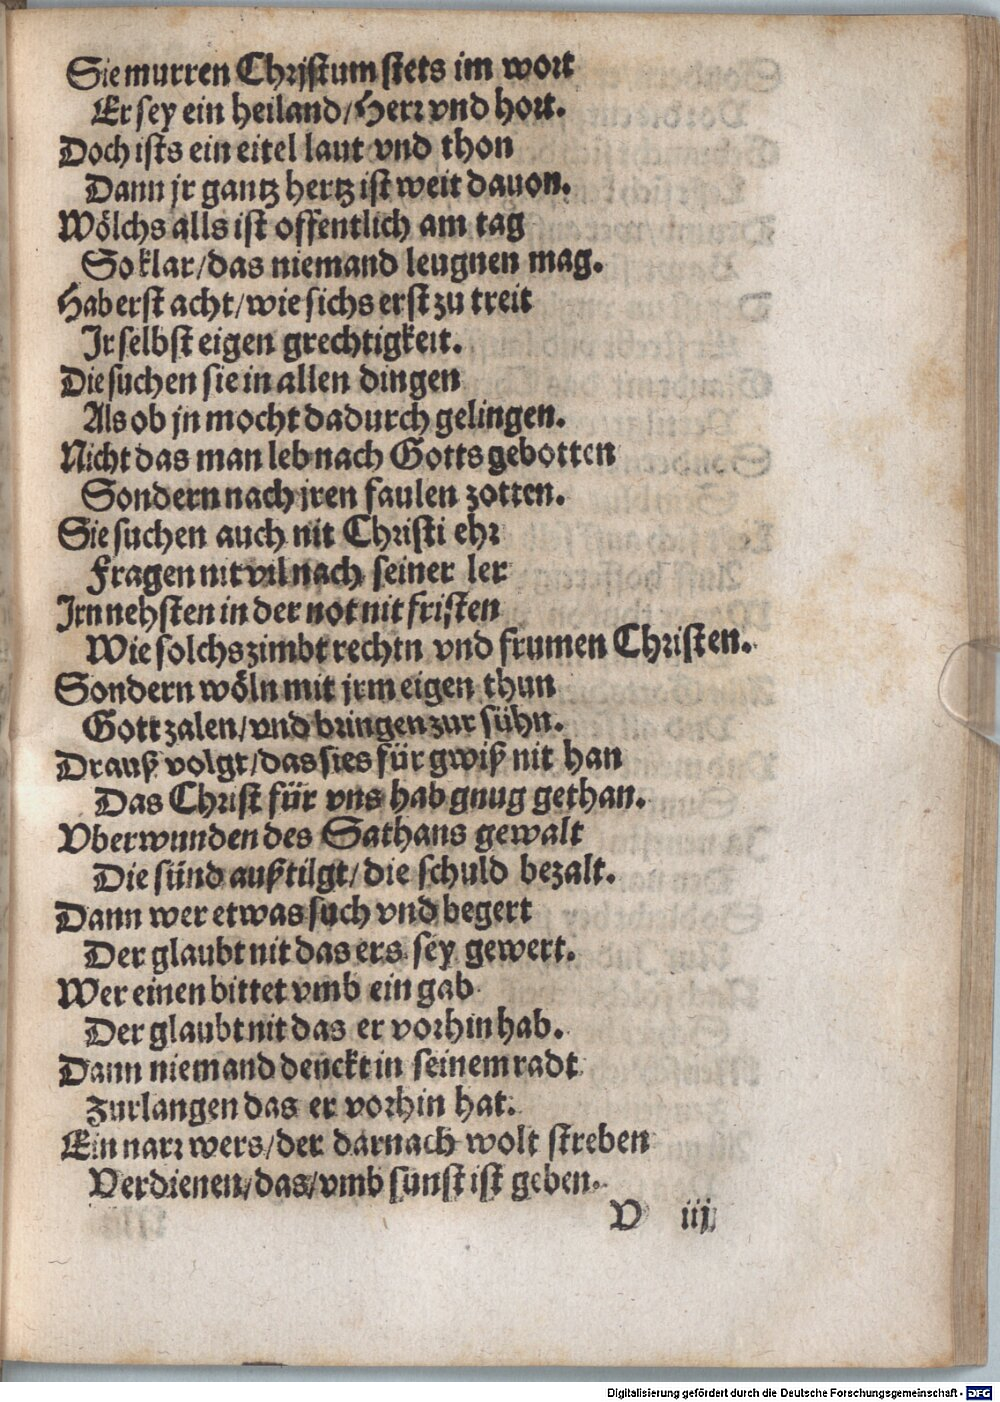 Sie murren Christum stets im wort
Er sey ein heiland/Herr vnd hort.
Doch ists ein eitel laut vnd thon
Dann jr gantz hertz ist weit dauon.
Wölchs alls ist offentlich am tag
So klar/das niemand leugnen mag.
Hab erst acht/wie sichs erst zu treit
Ir selbst eigen grechtigkeit.
Die suchen sie in allen dingen
Als ob jn mocht dadurch gelingen.
Nicht das man leb nach Gotts gebotten
Sondern nach jren faulen zotten.
Sie suchen auch nit Christi ehr
Fragen nit vil nach seiner ler
Irn nehsten in der not nit fristen
Wie solchs zimbt rechtn vnd frumen Christen.
Sondern wöln mit jrm eigen thun
Gott zalen/vnd bringen zur sühn.
Drauß volgt/das sies für gwiß nit han
Das Christ für vns hab gnug gethan.
Vberwunden des Sathans gewalt
Die sünd außtilgt/die schuld bezalt.
Dann wer etwas such vnd begert
Der glaubt nit das ers sey gewert.
Wer einen bittet vmb ein gab
Der glaubt nit das er vorhin hab.
Dann niemand denckt in seinem radt
Zurlangen das er vorhin hat.
Ein narr wers/der darnach wolt streben
Verdienen/das/vmb sunst ist geben.
V iij
Digitalisierung gefördert durch die Deutsche Forschungsgemeinschaft - DFG